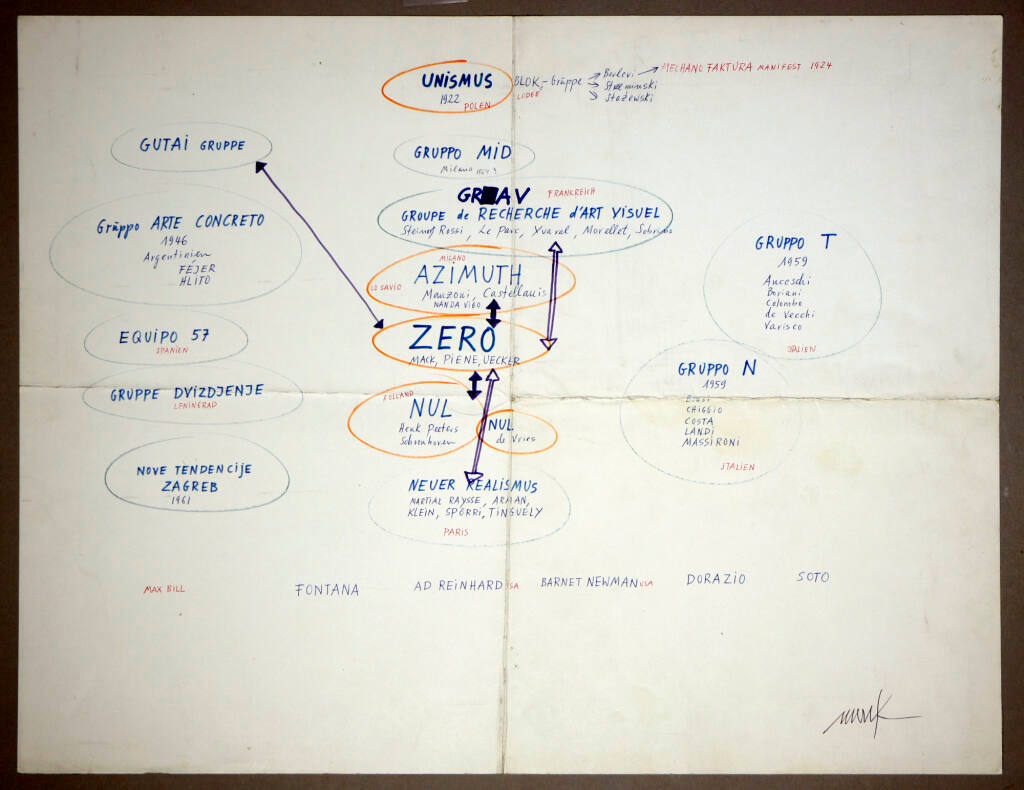 UNISMUS
1922
POLEN
BLOK - Gruppe
LODZ
Berlevi
Streminski
Stażewski
MECHANO FAKTURA MANIFEST 1924
GUTAI GRUPPE
GRUPPO MID
Milano 1964
GRAV
FRANKREICH
GROUPE de RECHERCHE d'ART VISUEL
Rossi, Le Parc, Yvaral, Morellet, Sobrino
Grüppo ARTE CONCRETO
1946
Argentinien
FEJER
HLITO
GRUPPO T
1959
Anceschi
Boriani
Colombo
de Vecchi
Varisco
ITALIEN
MILANO
AZIMUTH
LO SAVIO
Manzoni, Castellanis
NANDA VIGO
EQUIPO 57
SPANIEN
ZERO
MACK, PIENE, UECKER
GRUPPO N
1959
Biasi
CHIGGIO
COSTA
LANDI
MASSIRONI
ITALIEN
GRUPPE DVIZDJENJE
LENINGRAD
HOLLAND
NUL
Henk Peeters
Schoonhoven
NUL
de Vries
NOVE TENDENCIJE
ZAGREB
1961
NEUER REALISMUS
MARTIAL RAYSSE, ARMAN,
KLEIN, SPÖRRI, TINGUELY
PARIS
MAX BILL
FONTANA
AD REINHARD USA
BARNET NEWMAN USA
DORAZIO
SOTO
mack